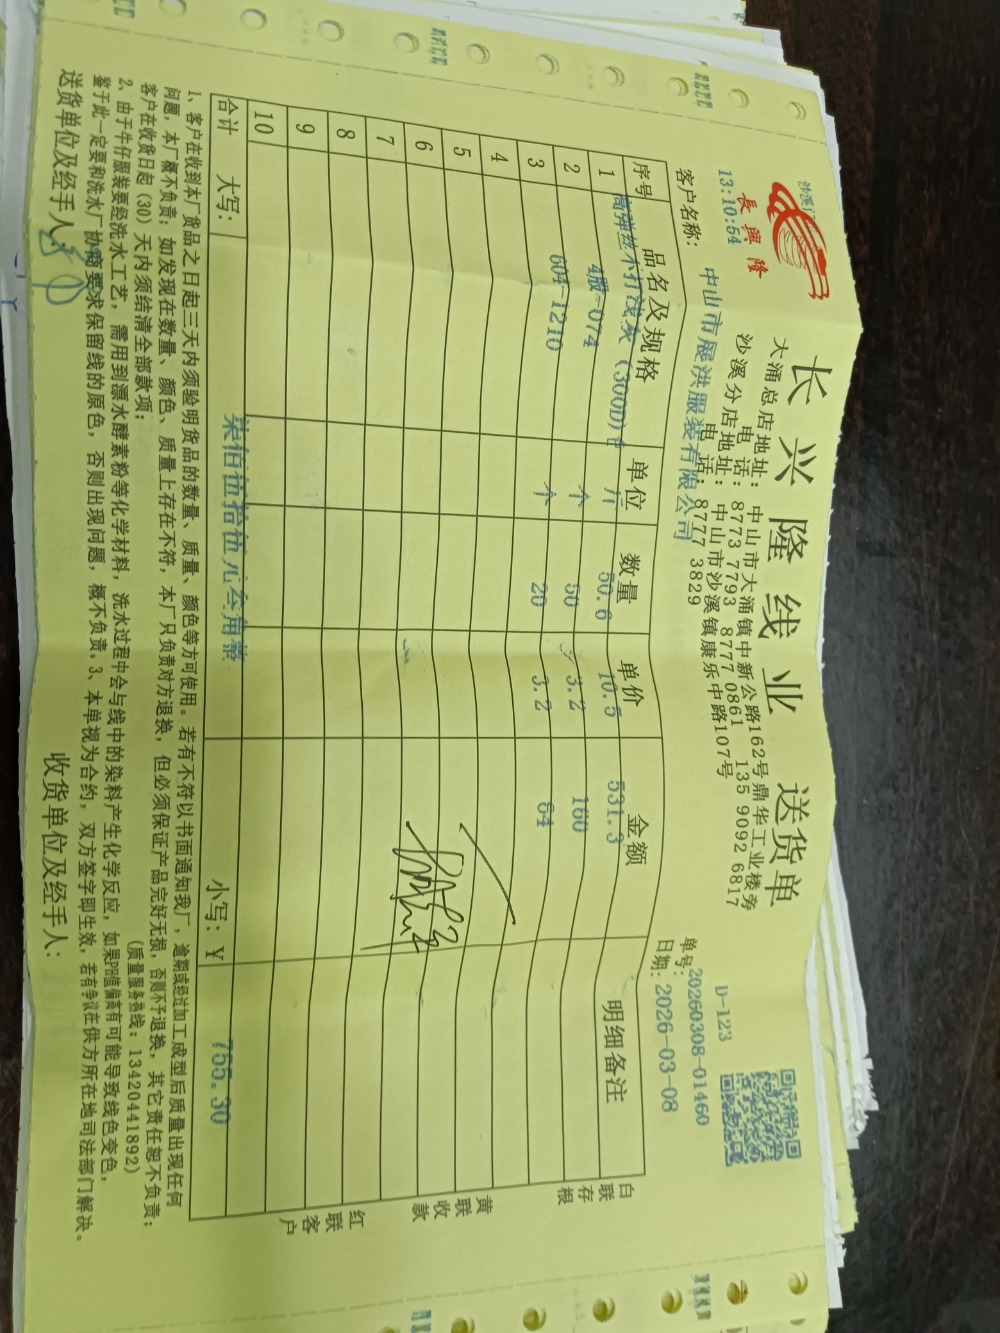 長興隆
13:10:54
长兴隆线业 送货单
大涌总店地址：中山市大涌镇中新公路162号鼎华工业楼旁
电话：8773 7793 8777 0861 135 9092 6817
沙溪分店地址：中山市沙溪镇康乐中路107号
电话：8777 3829
D-123
单号：20260308-01460
客户名称：中山市展洪服装有限公司
日期：2026-03-08
序号 品名及规格 单位 数量 单价 金额 明细备注
1 高弹丝不打浅灰（300D） 斤 50.6 10.5 531.3
2 4股-074 个 50 3.2 160
3 604-1210 个 20 3.2 64
4
5
6
7
8
9
10
合计 大写：柒佰伍拾伍元叁角整 小写：¥ 755.30
白联存根
黄联收款
红联客户
1、客户在收到本厂货品之日起三天内须验明货品的数量、质量、颜色等方可使用。若有不符以书面通知我厂，逾期或经过加工成型后质量出现任何
问题，本厂概不负责；如发现在数量、颜色、质量上存在不符，本厂只负责对方退换，但必须保证产品完好无损，否则不予退换，其它责任恕不负责；
客户在收货日起（30）天内须结清全部款项；
（质量服务热线：13420441892）
2、由于牛仔服装要经洗水工艺，需用到漂水酵素粉等化学材料，洗水过程中会与线中的染料产生化学反应，如果PH值偏高有可能导致线色变色，
鉴于此一定要和洗水厂协商要求保留线的原色，否则出现问题，概不负责。3、本单视为合约，双方签字即生效，若有争议在供方所在地司法部门解决。
送货单位及经手人：
收货单位及经手人：